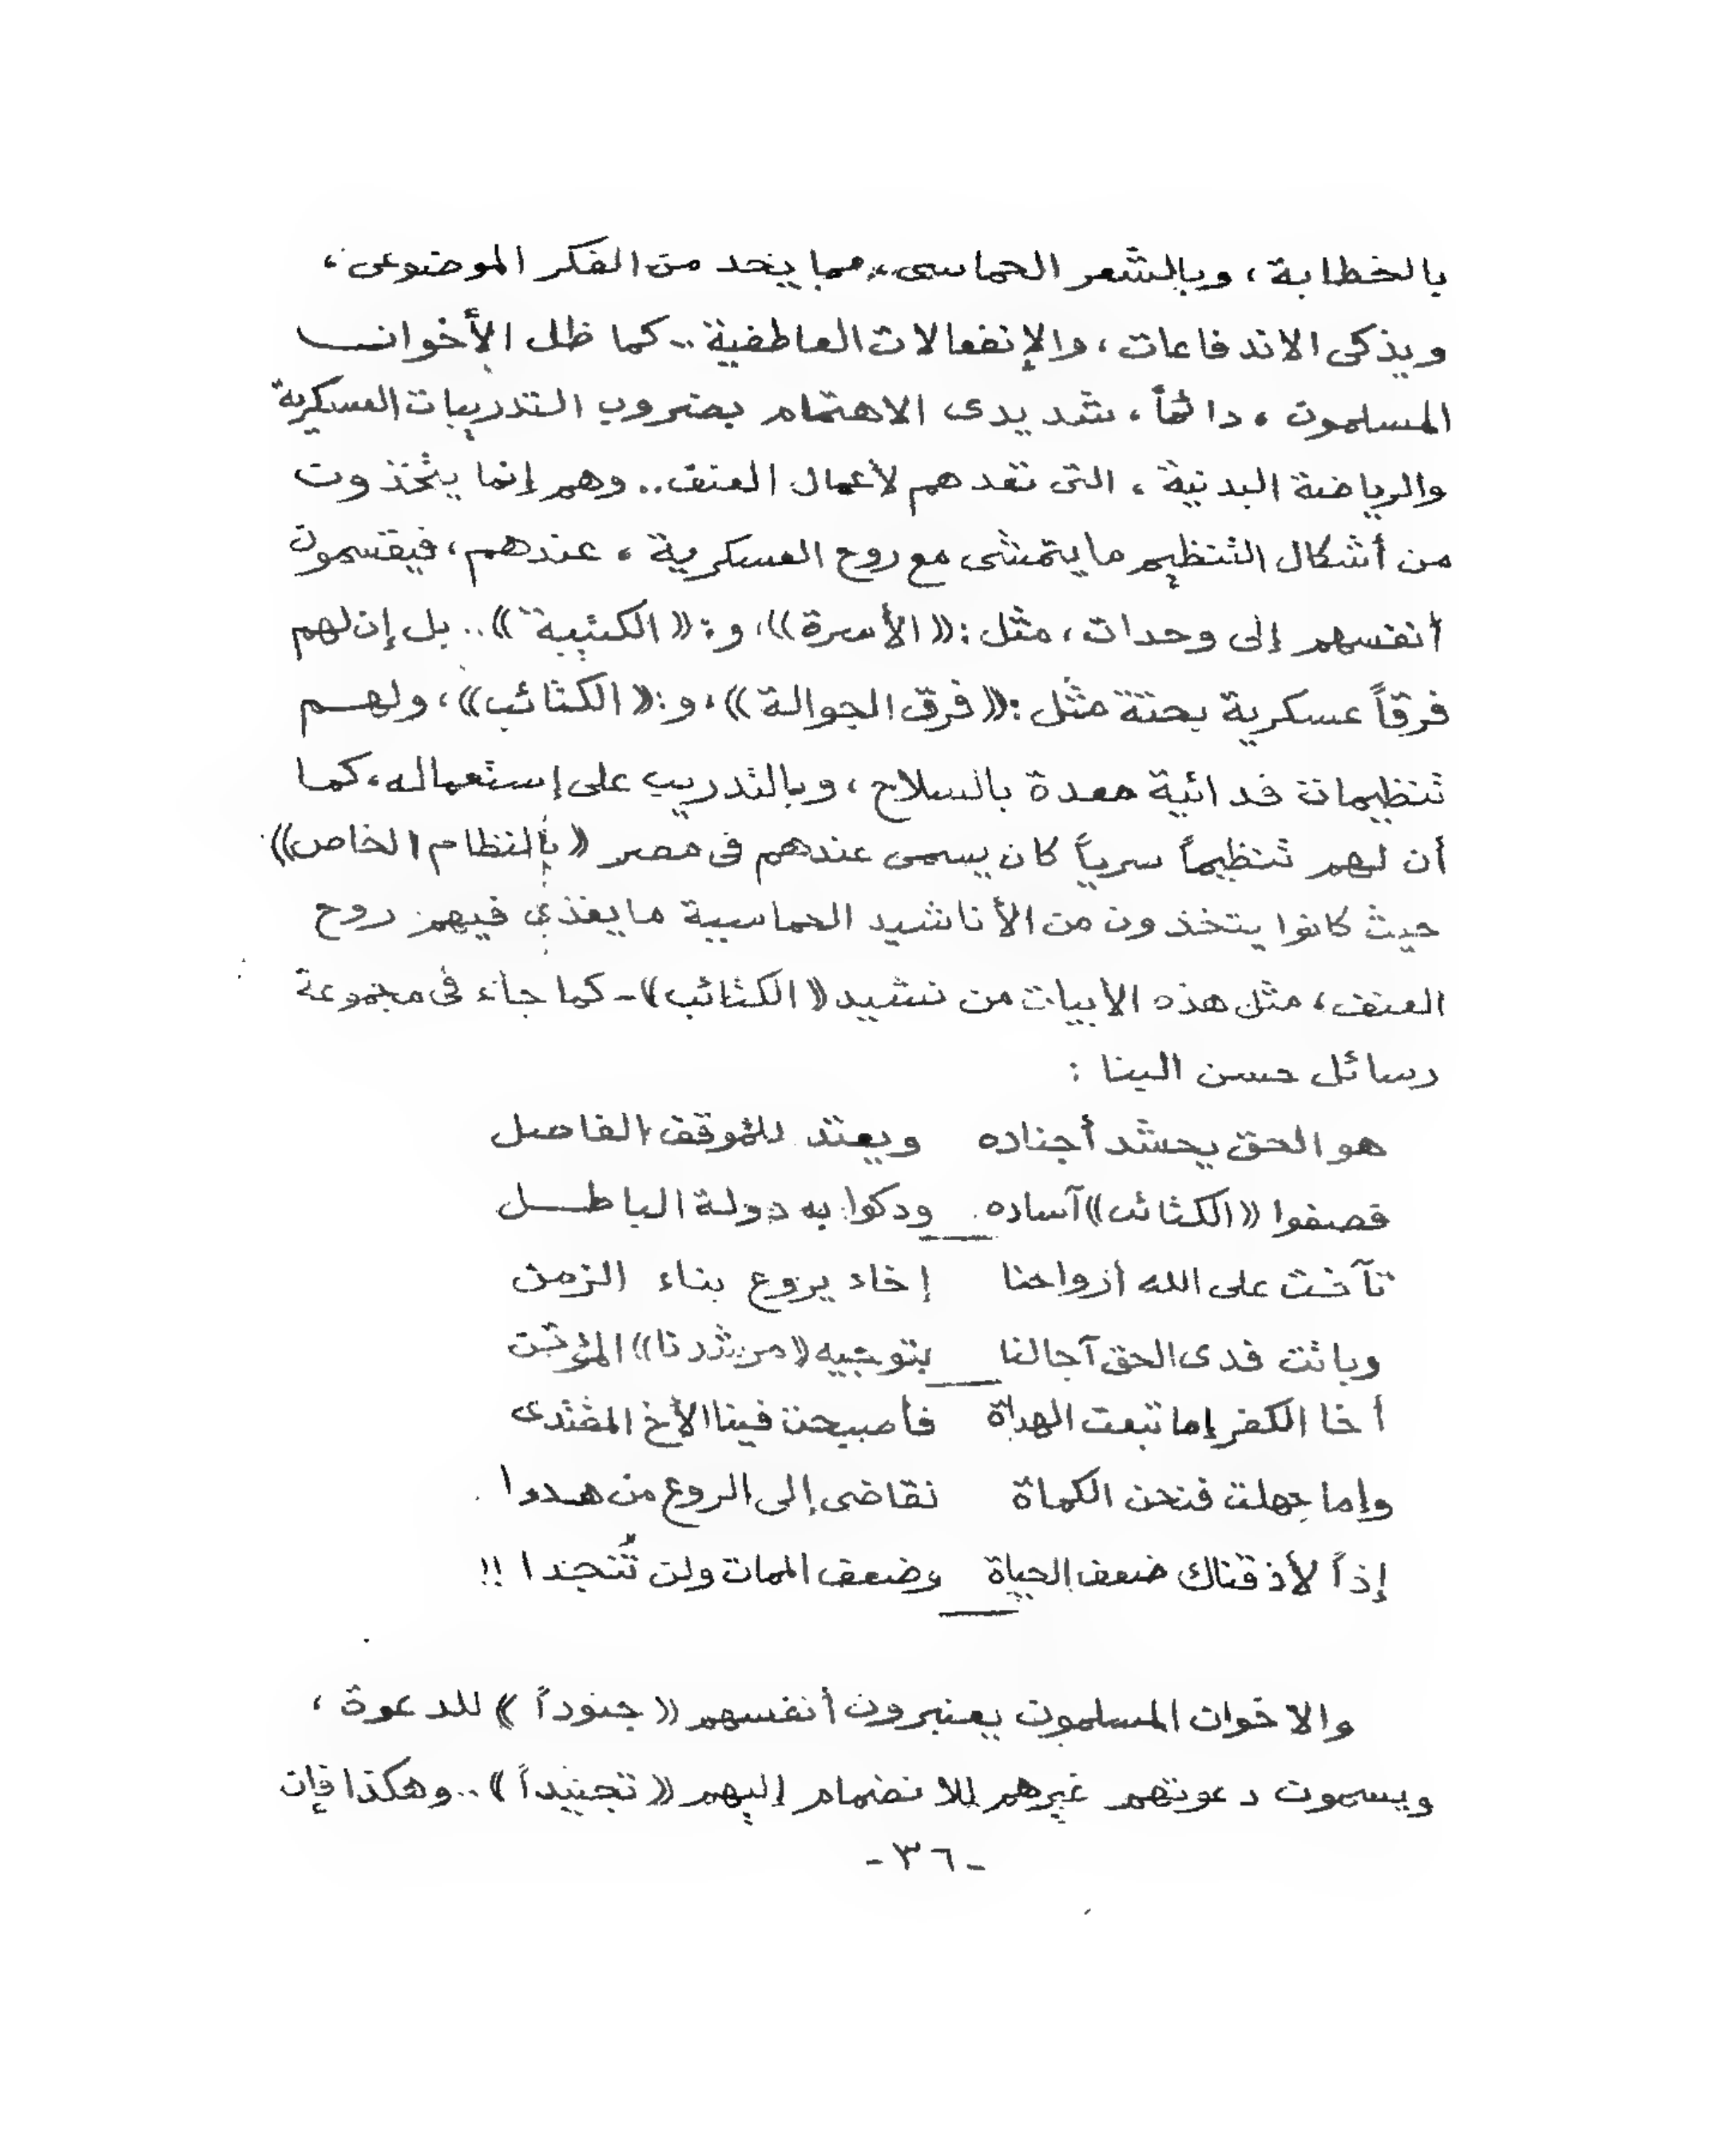 بالخطابة، وبالشعر الحماسى، مما يحد من الفكر الموضوعى،
ويذكى الاندفاعات، والإنفعالات العاطفية.. كما ظل الأخوان
المسلمون، دائماً، شديدى الاهتمام بضروب التدريبات العسكرية
والرياضة البدنية، التى تعدهم لأعمال العنف.. وهم إنما يتخذون
من أشكال التنظيم ما يتمشى مع روح العسكرية، عندهم، فيقسمون
أنفسهم إلى وحدات، مثل: «الأسرة»، و: «الكتيبة».. بل إن لهم
فرقاً عسكرية بحتة مثل: «فرق الجوالة»، و: «الكتائب»، ولهم
تنظيمات فدائية معدة بالسلاح، وبالتدريب على إستعماله، كما
أن لهم تنظيماً سرياً كان يسمى عندهم فى مصر «بالنظام الخاص»
حيث كانوا يتخذون من الأناشيد الحماسية ما يغذي فيهم روح
العنف، مثل هذه الأبيات من نشيد «الكتائب» - كما جاء فى مجموعة
رسائل حسن البنا:
هو الحق يحشد أجناده ويعتد للموقف الفاصل
فصفوا «الكتائب» آساده ودكوا به دولة الباطل
تآخت على الله أرواحنا إخاء يروع بناء الزمن
وباتت فدى الحق آجالنا بتوجيه «مرشدنا» المؤتمن
أخا الكفر إما تبعت الهداة فأصبحت فينا الأخ المفتدى
وإما جهلت فنحن الكماة نقاضى إلى الروع من هددا
إذاً لأذقناك ضعف الحياة وضعف الممات ولن تُنجدا!!
والاخوان المسلمون يعتبرون أنفسهم «جنوداً» للدعوة،
ويسمون دعوتهم غيرهم للانضمام إليهم «تجنيداً».. وهكذا فإن
-٣٦-